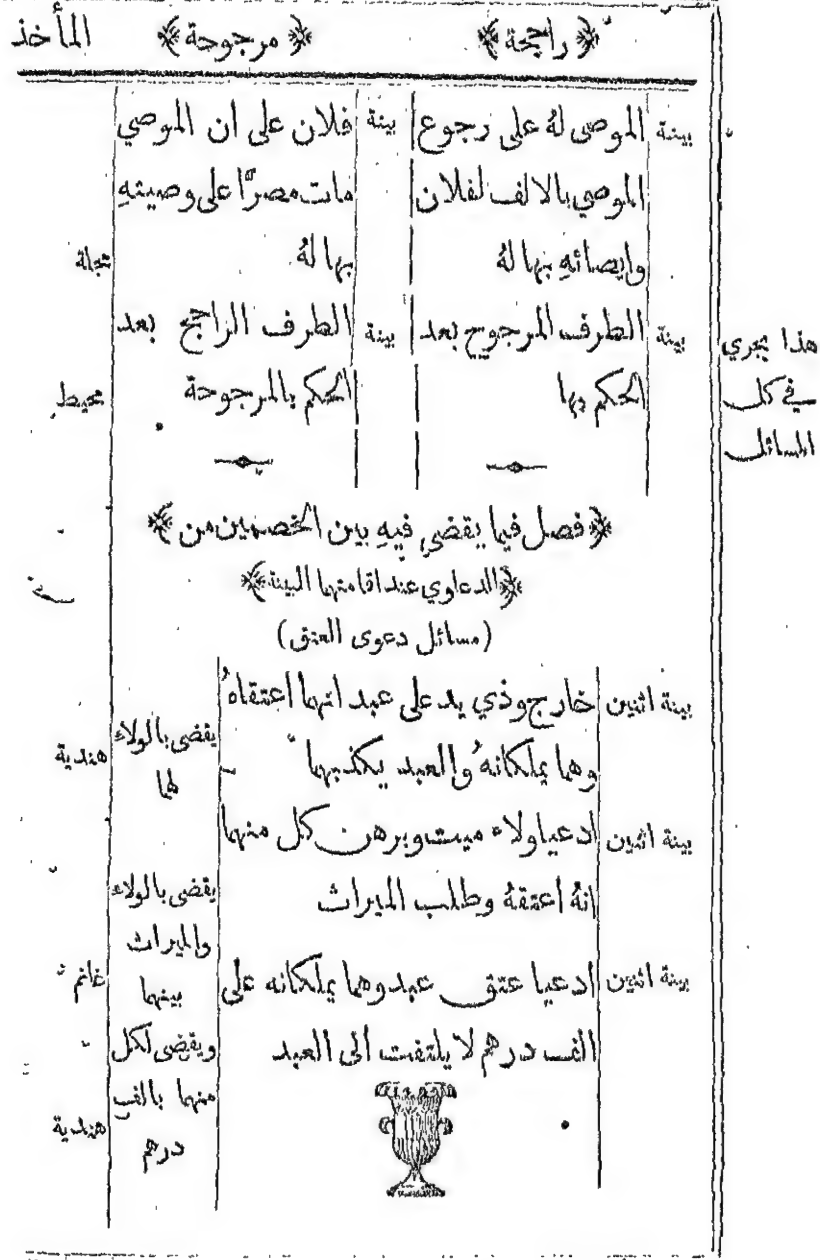 ﴿ راجحة ﴾ ﴿ مرجوحة ﴾ المأخذ
بينة الموصى لهُ على رجوع بينة فلان على ان الموصي
الموصي بالالف لفلان مات مصرًّا على وصيتهِ
وايصائهِ بها لهُ بها لهُ مجلة
بينة الطرف المرجوح بعد بينة الطرف الراجح بعد
الحكم بها الحكم بالمرجوحة محيط
هذا يجري
في كل
المسائل
﴿ فصل فيما يقضى فيهِ بين الخصمين من ﴾
﴿ الدعاوي عند اقامتهما البينة ﴾
(مسائل دعوى العتق)
بينة اثنين خارج وذي يد على عبد انهما اعتقاهُ
وهما يملكانهُ والعبد يكذبهما
يقضى بالولاء
لهما
هندية
بينة اثنين ادعيا ولاء ميت وبرهن كل منهما
انهُ اعتقهُ وطلب الميراث
يقضى بالولاء
والميراث
بينهما
غانم
بينة اثنين ادعيا عتق عبد وهما يملكانه على
الف درهم لا يلتفت الى العبد
ويقضى لكل
منهما بالف
درهم
هندية